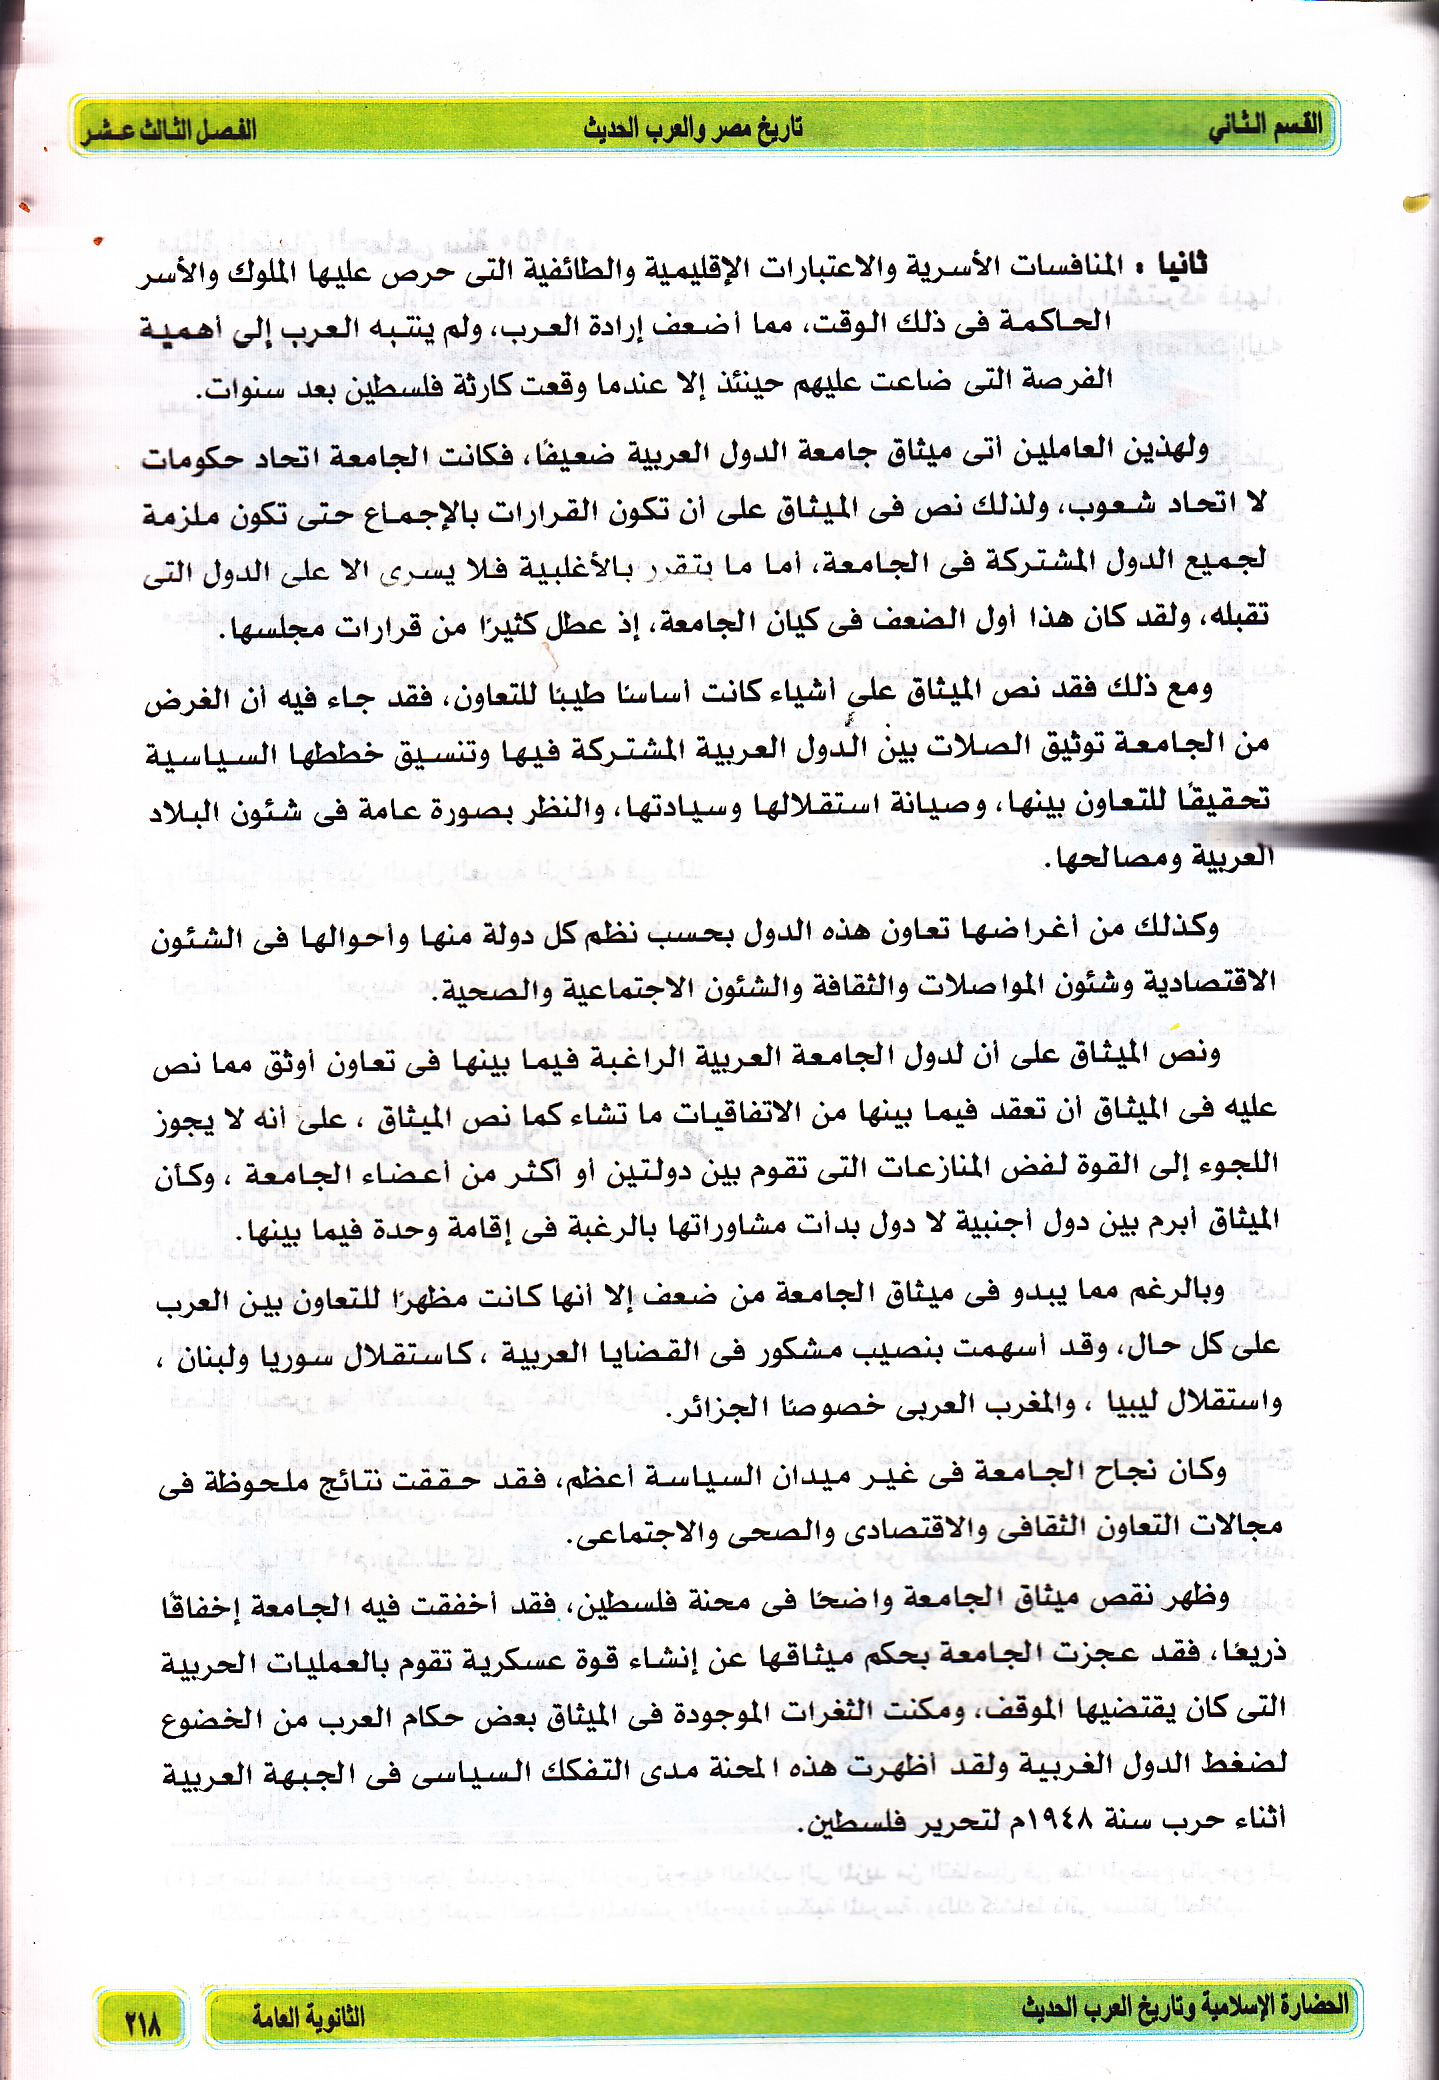 القسم الثاني
تاريخ مصر والعرب الحديث
الفصل الثالث عشر
ثانيا : المنافسات الأسرية والاعتبارات الإقليمية والطائفية التى حرص عليها الملوك والأسر
الحاكمة فى ذلك الوقت، مما أضعف إرادة العرب، ولم ينتبه العرب إلى أهمية
الفرصة التى ضاعت عليهم حينئذ إلا عندما وقعت كارثة فلسطين بعد سنوات.
ولهذين العاملين أتى ميثاق جامعة الدول العربية ضعيفًا، فكانت الجامعة اتحاد حكومات
لا اتحاد شعوب، ولذلك نص فى الميثاق على أن تكون القرارات بالإجماع حتى تكون ملزمة
لجميع الدول المشتركة فى الجامعة، أما ما يتقرر بالأغلبية فلا يسرى الا على الدول التى
تقبله، ولقد كان هذا أول الضعف فى كيان الجامعة، إذ عطل كثيرًا من قرارات مجلسها.
ومع ذلك فقد نص الميثاق على أشياء كانت أساسًا طيبًا للتعاون، فقد جاء فيه أن الغرض
من الجامعة توثيق الصلات بين الدول العربية المشتركة فيها وتنسيق خططها السياسية
تحقيقًا للتعاون بينها، وصيانة استقلالها وسيادتها، والنظر بصورة عامة فى شئون البلاد
العربية ومصالحها.
وكذلك من أغراضها تعاون هذه الدول بحسب نظم كل دولة منها وأحوالها فى الشئون
الاقتصادية وشئون المواصلات والثقافة والشئون الاجتماعية والصحية.
ونص الميثاق على أن لدول الجامعة العربية الراغبة فيما بينها فى تعاون أوثق مما نص
عليه فى الميثاق أن تعقد فيما بينها من الاتفاقيات ما تشاء كما نص الميثاق ، على أنه لا يجوز
اللجوء إلى القوة لفض المنازعات التى تقوم بين دولتين أو أكثر من أعضاء الجامعة ، وكأن
الميثاق أبرم بين دول أجنبية لا دول بدأت مشاوراتها بالرغبة فى إقامة وحدة فيما بينها.
وبالرغم مما يبدو فى ميثاق الجامعة من ضعف إلا أنها كانت مظهرًا للتعاون بين العرب
على كل حال، وقد أسهمت بنصيب مشكور فى القضايا العربية ، كاستقلال سوريا ولبنان ،
واستقلال ليبيا ، والمغرب العربى خصوصًا الجزائر.
وكان نجاح الجامعة فى غير ميدان السياسة أعظم، فقد حققت نتائج ملحوظة فى
مجالات التعاون الثقافى والاقتصادى والصحى والاجتماعى.
وظهر نقص ميثاق الجامعة واضحًا فى محنة فلسطين، فقد أخفقت فيه الجامعة إخفاقًا
ذريعًا، فقد عجزت الجامعة بحكم ميثاقها عن إنشاء قوة عسكرية تقوم بالعمليات الحربية
التى كان يقتضيها الموقف، ومكنت الثغرات الموجودة فى الميثاق بعض حكام العرب من الخضوع
لضغط الدول الغربية ولقد أظهرت هذه المحنة مدى التفكك السياسى فى الجبهة العربية
أثناء حرب سنة ١٩٤٨م لتحرير فلسطين.
الحضارة الإسلامية وتاريخ العرب الحديث
الثانوية العامة
٢١٨